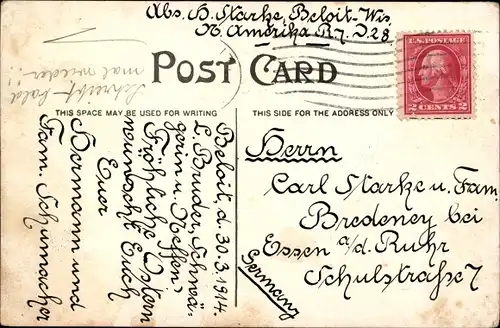 Abs. H. Starke, Beloit-Wis.
N. Amerika R.7. D.28.
U.S. POSTAGE
2 CENTS 2
POST CARD
Schreibt bald
mal wieder!!
THIS SPACE MAY BE USED FOR WRITING
THIS SIDE FOR THE ADDRESS ONLY
Beloit, d. 30.3.1914.
L. Bruder, Schwä-
gerin u. Neffen!
Fröhliche Ostern
wünscht Euch
Euer
Hermann und
Fam. Schumacher
Herrn
Carl Starke u. Fam.
Bredeney bei
Essen a/d. Ruhr
Schulstraße 7
Germany